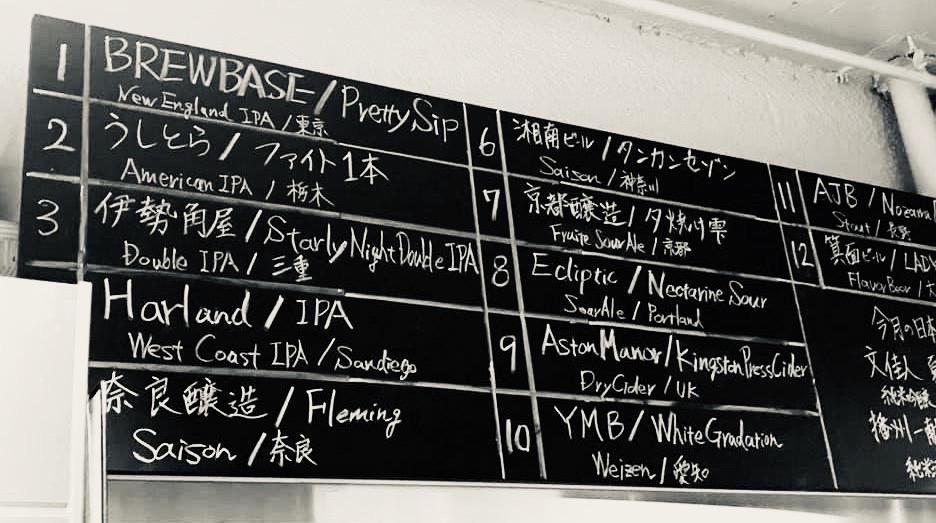 1
BREWBASE / Pretty Sip
New England IPA / 東京
2
うしとら / ファイト1本
American IPA / 栃木
3
伊勢角屋 / Starly Night Double IPA
Double IPA / 三重
Harland / IPA
West Coast IPA / Sandiego
奈良醸造 / Fleming
Saison / 奈良
6
湘南ビール / タンカンセゾン
Saison / 神奈川
7
京都醸造 / 夕焼け雫
Fruite Sour Ale / 京都
8
Ecliptic / Nectarine Sour
Sour Ale / Portland
9
Aston Manor / Kingston Press Cider
Dry Cider / UK
10
YMB / White Gradation
Weizen / 愛知
11
AJB / Nozawa
Stout / 長野
12
箕面ビール / LADY
Flavor Beer / 大
今月の日本
文佳人 夏
純米吟醸
播州一献
純米